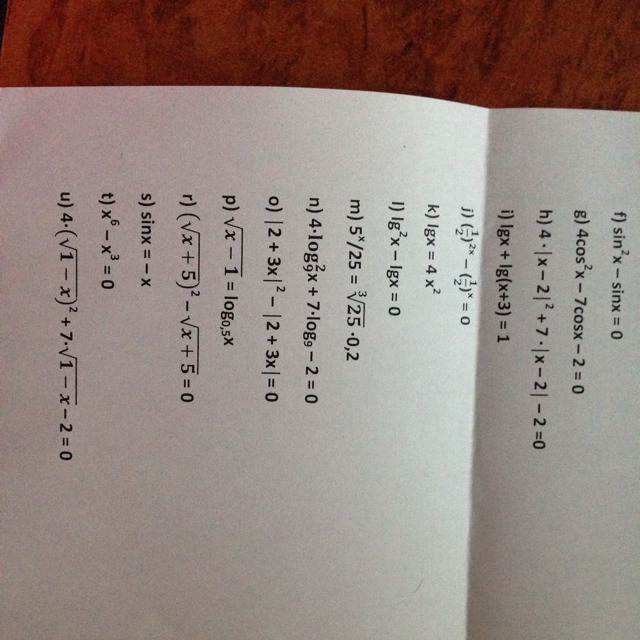 f) sin²x – sinx = 0
g) 4cos²x – 7cosx – 2 = 0
h) 4·|x – 2|² + 7·|x – 2| – 2 =0
i) lgx + lg(x+3) = 1
j) (½)²ˣ – (½)ˣ = 0
k) lgx = 4 x²
l) lg²x – lgx = 0
m) 5ˣ/25 = ∛25 ·0,2
n) 4·log₉²x + 7·log₉ – 2 = 0
o) |2 + 3x|² – |2 + 3x| = 0
p) √(x – 1) = log₀,₅x
r) (√(x + 5))² – √(x + 5) = 0
s) sinx = – x
t) x⁶ – x³ = 0
u) 4·(√(1 – x))² + 7·√(1 – x) – 2 = 0